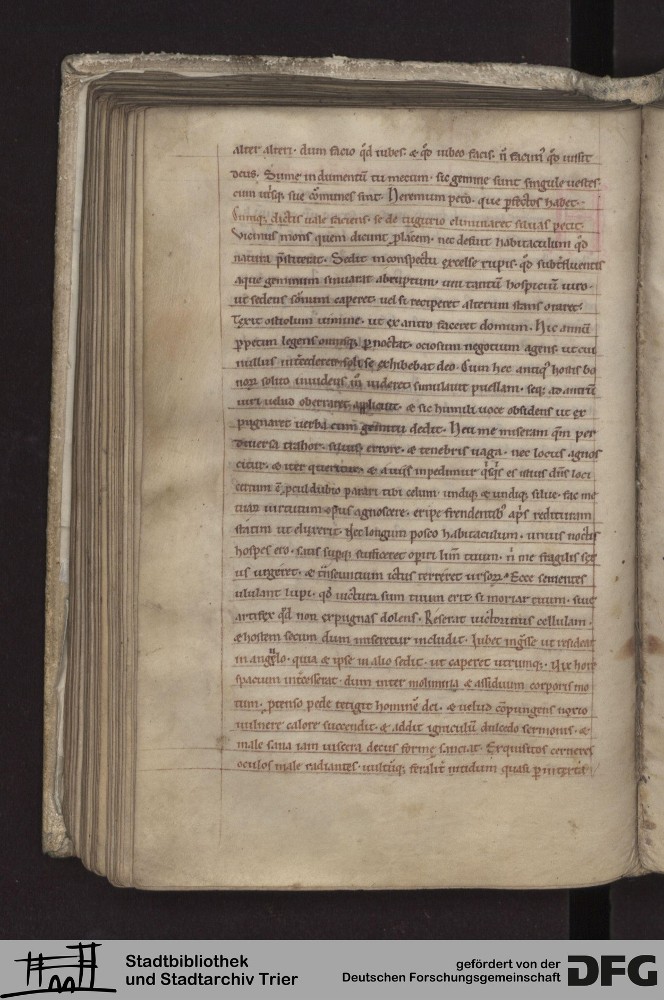 alter alteri. dum facio qd iubes. & qd iubeo facis. n̄ facim᷒ qd iussit
deus. Sume indumentū tu mecum. sic gemine sunt singule uestes
cum utrisq; sue cōmunes sint. Heremum peto. que pfectos habet.
Cumq; dictis uale faciens. se de tugurio eliminaret siluas petit
Vicinus mons quem dicunt placem. nec defuit habitaculum qd
natura pstiterat. Sedit inconspectu excelse rupis. qd subterfluentis
aque geminum sinuarat abruptum. uni tantū hospiciū uiro.
ut sedens sōnum caperet. uel se reciperet alterum stans oraret.
Texit ostiolum uimine. ut ex antro faceret domum. Hic annū
ppetem legens omnisq; pnoctat. ociosum negotium agens. ut cui
nullus intcederet. soli se exhibebat deo. Cum hec antiq᷒ hostis bo
noꝝ solito inuidens in uideret. simulauit puellam. seq; ad antrū
uiri uelud oberraret applicuit. & sic humili uoce obsidens ut ex
pugnaret uerba cum gemitu dedit. Heu me miseram qm per
diuersa trahor. siluis errore. & tenebris uaga. nec locus agnos
citur. & iter queritur. & auiis inpedimur qsqs es istius dns loci
cultum ē pculdubio parari tibi celum. undiq; & undiq; salue. fac me
tuaꝝ uirtutum opus agnoscere. eripe frendentib᷒ apris redituram
statim ut eluxerit. Nec longum posco habitaculum. unius noctis
hospes ero. satis supq; sufficeret operiri limen tuum. n̄ me fragilis sex
us urgeret. & transeuntium ictus terreret ursoꝝ. Ecce sementes
ululant lupi. qd uictura sum tuum erit. si moriar tuum. siue
artifex qd non expugnas dolens. Reserat uictorinus cellulam.
& hostem secum dum miseretur includit. Iubet ingsse ut resideat
in angulo. quia & ipse in alio sedit. ut caperet utrumq;. Vix hore
spacium intcesserat. dum inter molimina & assiduum corporis mo
tum. ptenso pede tetigit hominē dei. & uelud cōpungens noxio
uulnere calore succendit. & addit igniculū dulcedo sermonis. &
male sana iam uiscera decus forme sauciat. Exquisitos cerneres
oculos male radiantes. uultūq; feralit nitidum quasi